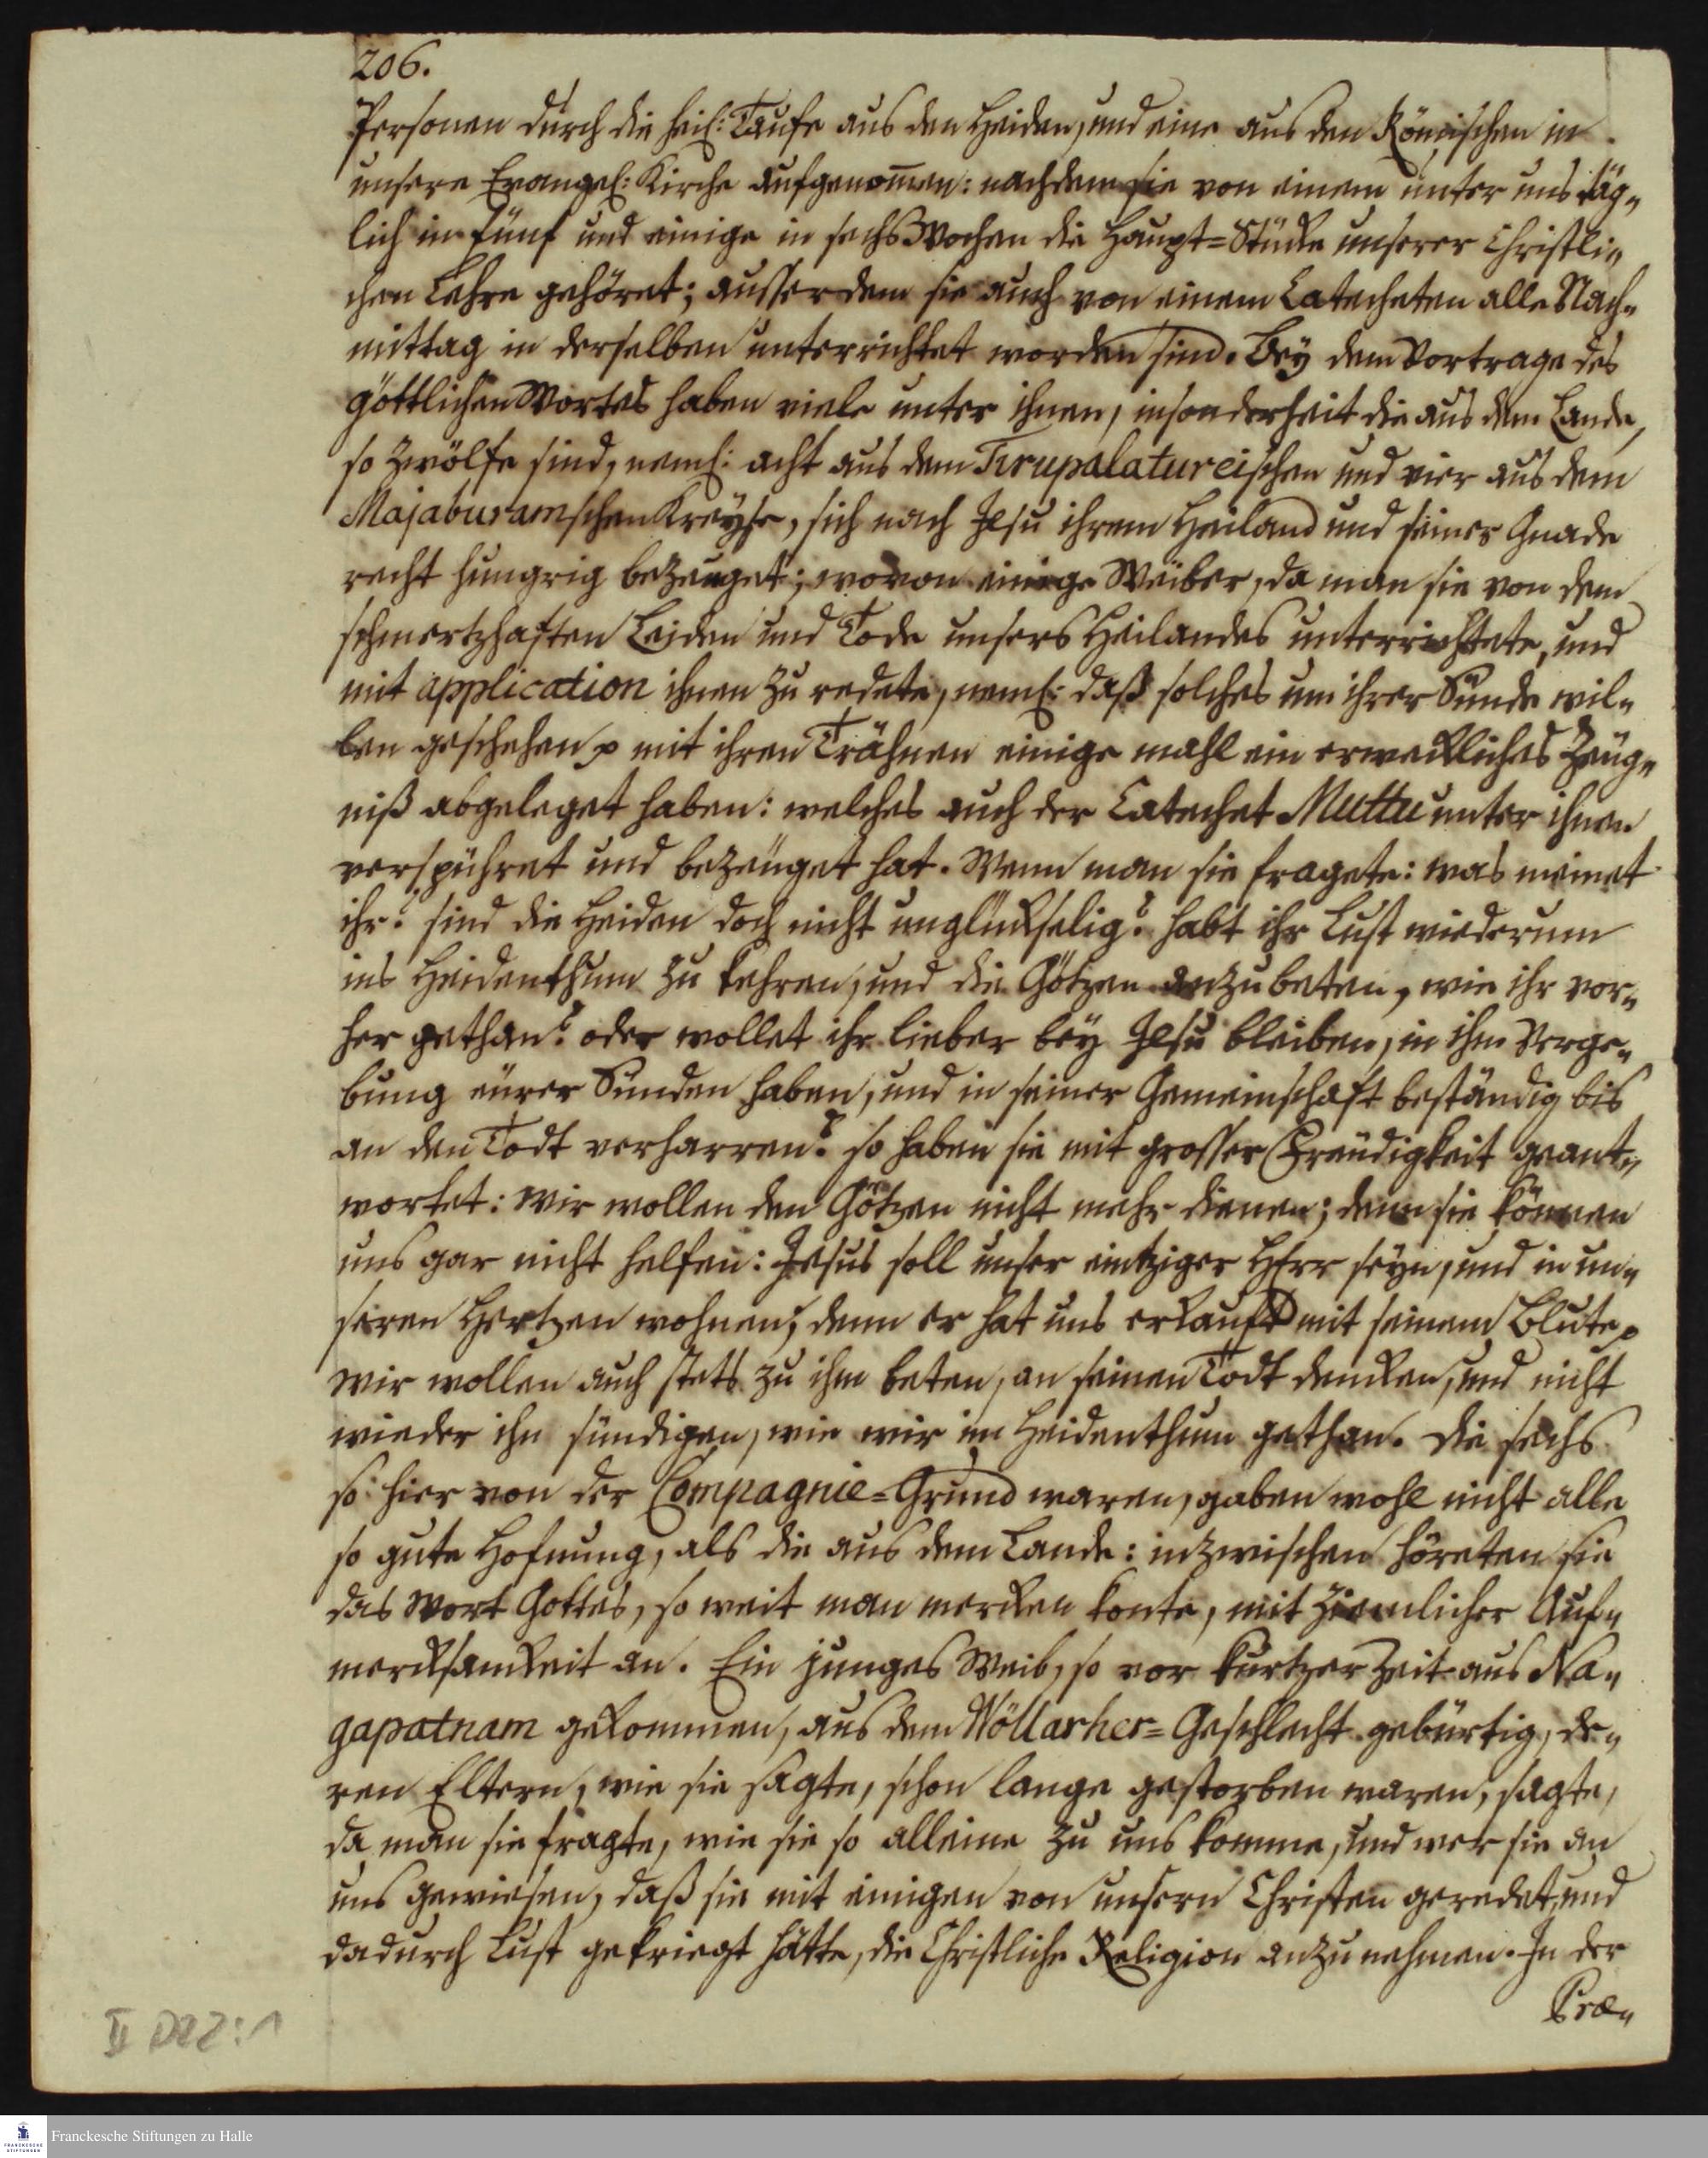 206.
Personen durch die heil: Taufe aus den Heiden, und eine aus den Römischen in
unsere Evangel: Kirche aufgenom̅en: nachdem sie von einem unter uns täg„
lich in fünf und einige in sechs Wochen die Haupt=Stücke unserer Christli„
chen Lehre gehöret; ausser dem sie auch von einem Catecheten alle Nach„
mittag in derselben unterrichtet worden sind. Bey dem Vortrage des
göttlichen Wortes haben viele unter ihnen, insonderheit die aus dem Lande,
so zwölfe sind, neml: acht aus dem Tirupalatureischen und vier aus dem
Majaburamschen Kreyse, sich nach Jesu ihrem Heiland und seiner Gnade
recht hungrig bezeuget; wovon einige Weiber, da man sie von dem
schmertzhaften Leiden und Tode unsers Heilandes unterrichtete, und
mit application ihnen zu redete, neml: daß solches um ihrer Sünde wil„
len geschehen p mit ihren Trähnen einige mahl ein erweckliches Zeüg„
niß abgeleget haben: welches auch der Catechet Muttu unter ihnen
verspühret und bezeüget hat. Wenn man sie fragete: was meinet
ihr? sind die Heiden doch nicht unglückselig? habt ihr Lust wiederum
ins Heidenthum zu kehren, und die Götzen anzubeten, wie ihr vor„
her gethan? oder wollet ihr lieber bey Jesu bleiben, in ihm Verge„
bung eürer Sünden haben, und in seiner Gemeinschaft beständig bis
an den Todt verharren? so haben sie mit grosser Freüdigkeit geant„
wortet: Wir wollen den Götzen nicht mehr dienen; denn sie können
uns gar nicht helfen: Jesus soll unser eintziger HErr seyn, und in un„
seren Hertzen wohnen; denn er hat uns erkauft mit seinem Blute p
Wir wollen auch stets zu ihm beten, an seinen Todt dencken, und nicht
wieder ihn sündigen, wie wir im Heidenthum gethan. Die sechs
so hier von der Compagnie=Grund waren, gaben wohl nicht alle
so gute Hofnung, als die aus dem Lande: inzwischen höreten sie
das Wort Gottes, so weit man mercken konte, mit ziemlicher Auf„
mercksamkeit an. Ein junges Weib, so vor kurtzer Zeit aus Na„
gapatnam gekommen, aus dem Wöllarher=Geschlecht gebürtig, de„
ren Eltern, wie sie sagte, schon lange gestorben waren, sagte,
da man sie fragte, wie sie so alleine zu uns komme, und wer sie an
uns gewiesen, daß sie mit einigen von unsern Christen geredet, und
dadurch Lust gekriegt hätte, die Christliche Religion anzunehmen. In der
Præ„
II D22:1
Franckesche Stiftungen zu Halle
FRANCKESCHE
STIFTUNGEN